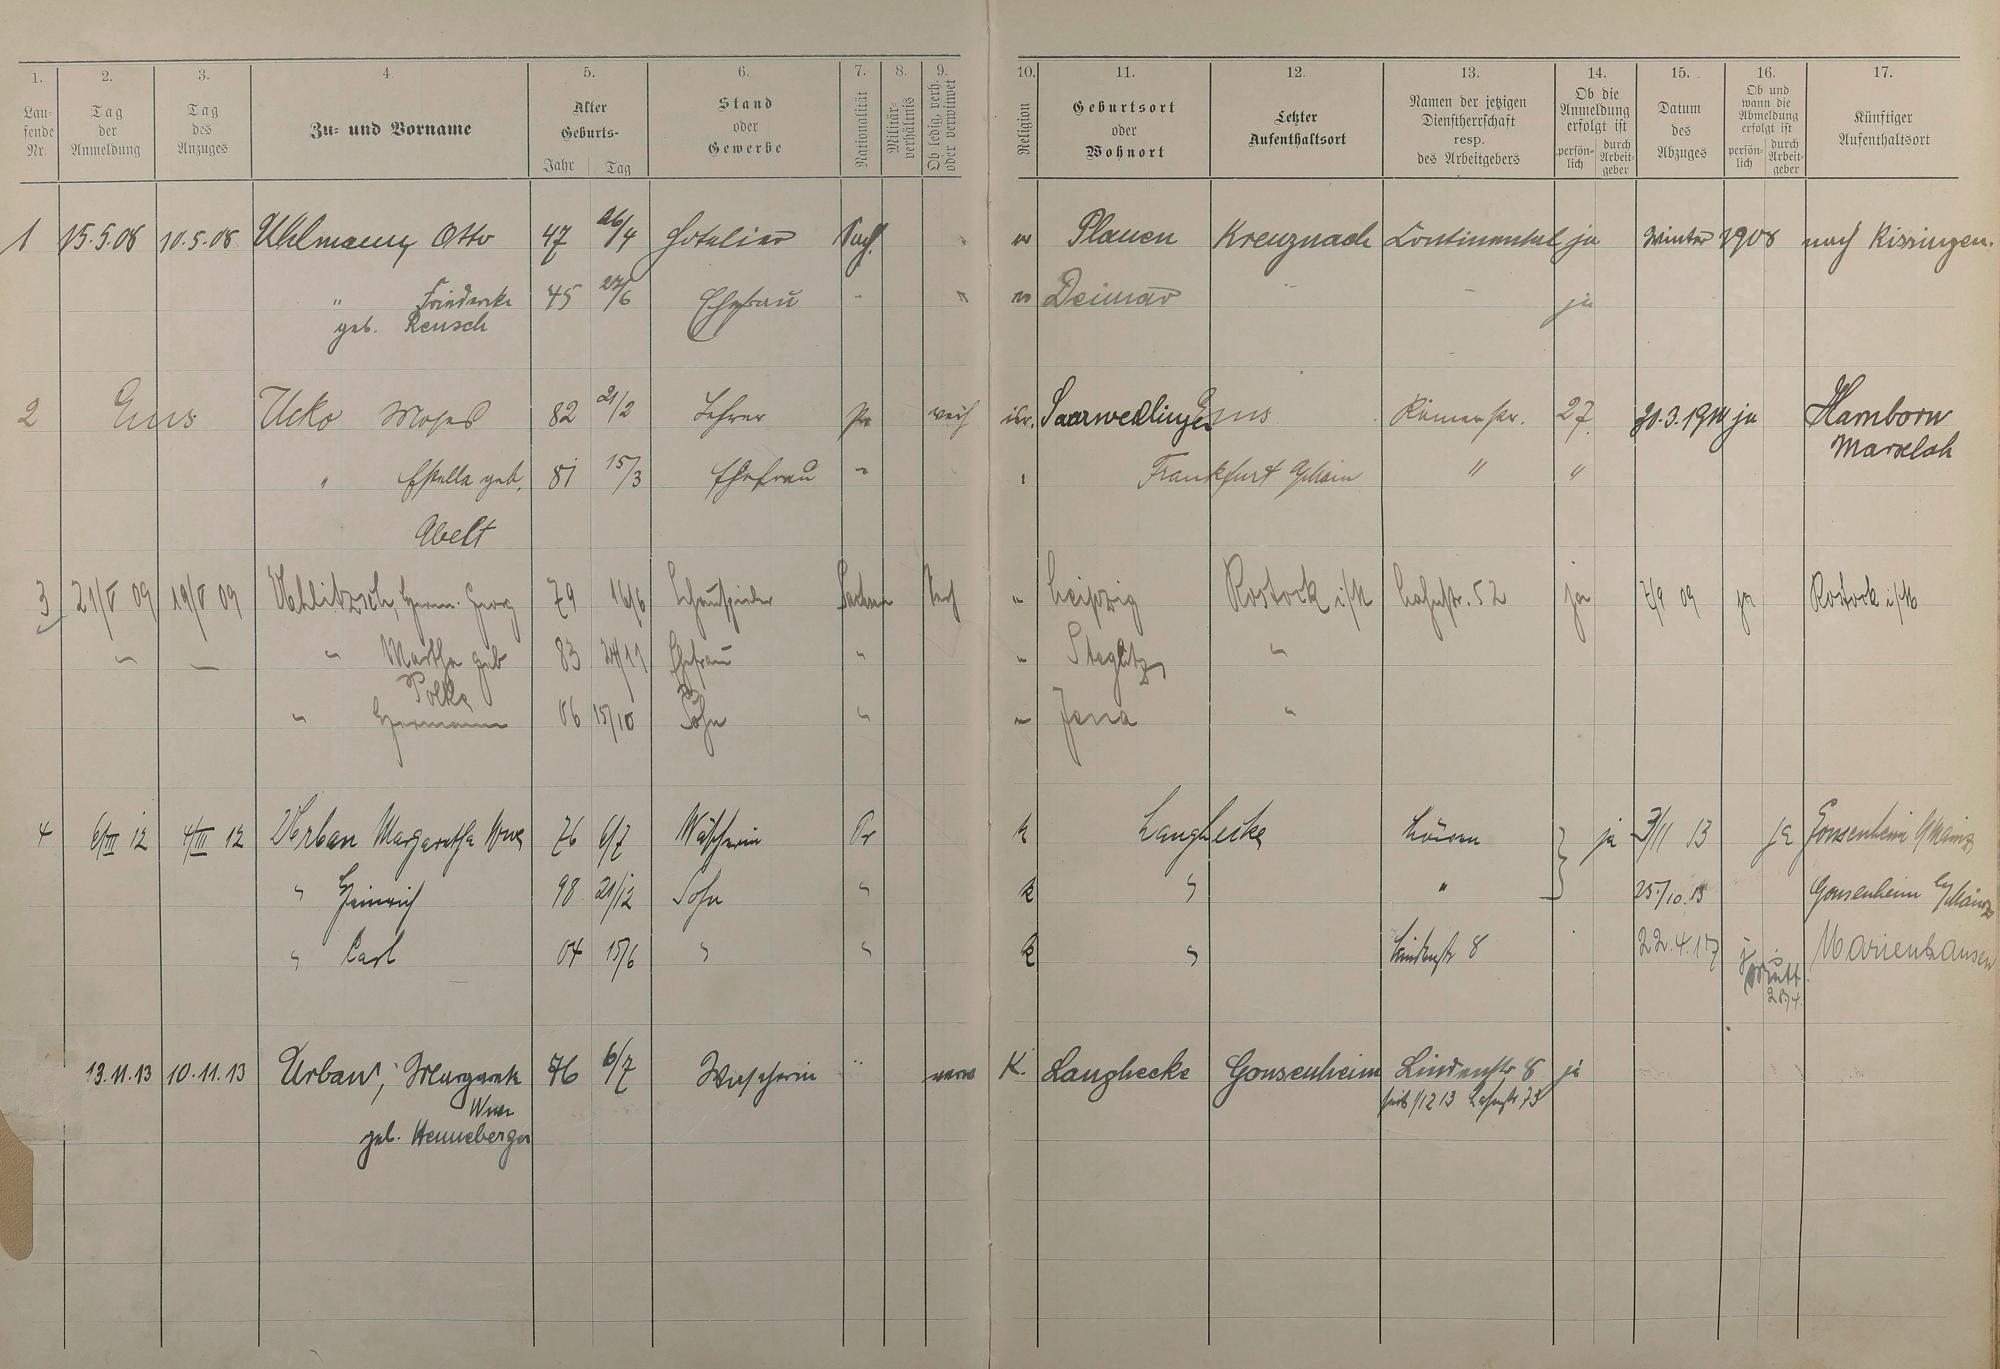 1. 2. 3. 4. 5. 6. 7. 8. 9. 10. 11. 12. 13. 14. 15. 16. 17.
Lau-
fende
Nr.
Tag
der
Anmeldung
Tag
des
Anzuges
Zu- und Vorname
Alter
Geburts-
Jahr Tag
Stand
oder
Gewerbe
Nationalität
Militär-
verhältnis
Ob ledig, verh.
oder verwitwet
Religion
Geburtsort
oder
Wohnort
Letzter
Aufenthaltsort
Namen der jetzigen
Dienstherrschaft
resp.
des Arbeitgebers
Ob die
Anmeldung
erfolgt ist
persön-
lich
durch
Arbeit-
geber
Datum
des
Abzuges
Ob und
wann die
Abmeldung
erfolgt ist
persön-
lich
durch
Arbeit-
geber
Künftiger
Aufenthaltsort
1 15.5.08 10.5.08 Uhlmann, Otto 47 26/4 Hotelier Plauen Kreuznach Continental ja Winter 1908 nach Kissingen.
" Friedericke 45 27/6 Ehefrau " ja
geb. Reusch
2 Ems Ucko Moses 82 21/2 Lehrer Pr isr. Saarwellingen Ems Römerstr. 27 30.3.1914 ja Hamborn
Marxloh
" Estella geb. 81 15/3 Ehefrau " Frankfurt a/Main " "
Abelt
3 21/V 09 19/V 09 Uhlitzsch, Herm. Georg 79 16/6 Schauspieler Sachsen Verh " Leipzig Rostock i/M Lahnstr. 52 ja 7/9 09 ja Rostock i/M
" — " Martha geb 83 24/11 Ehefrau " " Steglitz "
Polka
" Hermann 06 15/10 Sohn " " Jena "
4 6/III 12 4/III 12 Urban Margaretha Wwe 76 6/7 Wäscherin Pr k Langhecke Löwen ja 3/11 13 ja Gonsenheim b/Mainz
" Heinrich 98 21/12 Sohn " k " " 25/10.13 Gonsenheim b/Mainz
" Carl 04 15/6 " " k " Lindenstr 8 22.4.17 Marienhausen
28/4.
13.11.13 10.11.13 Urban, Margareta 76 6/7 Wäscherin " verw K. Langhecke Gonsenheim Lindenstr 8 ja
Wwe seit 1/12 13 Lahnstr 73
geb. Henneberger